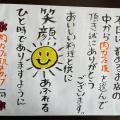 本日は、数あるお店の
中から肉カフェ店を選んで
頂き誠にありがとう
ございます。
おいしい料理と供に
笑顔あふれる
ひと時でありますように